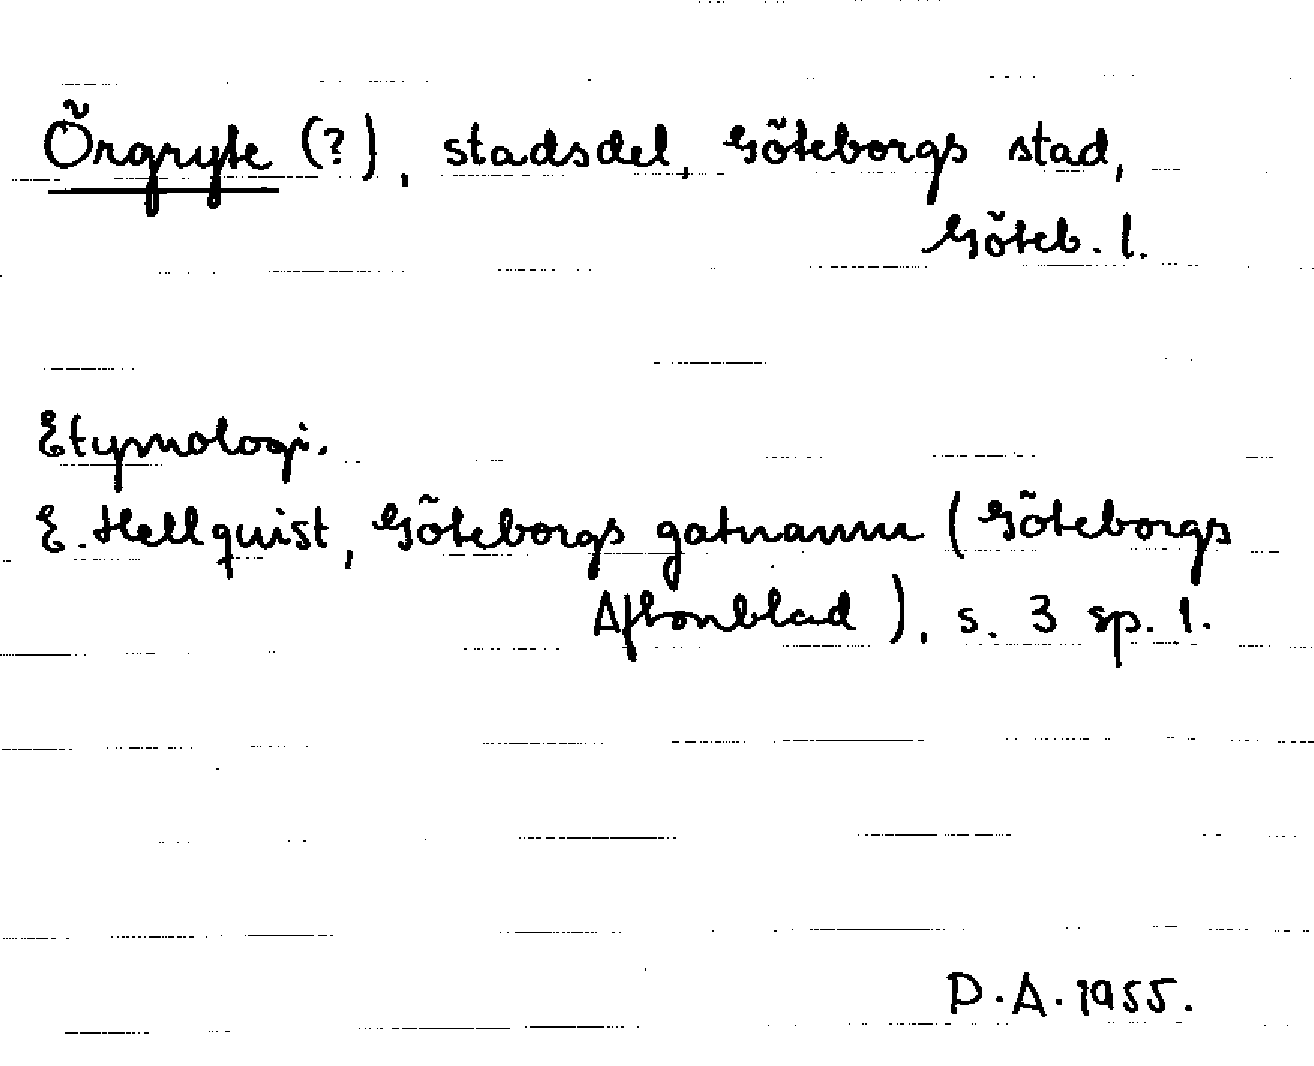 Örgryte (?), stadsdel, Göteborgs stad,
Göteb. l.
Etymologi.
E. Hellquist, Göteborgs gatnamn (Göteborgs
Aftonblad), s. 3 sp. 1.
D.A. 1955.